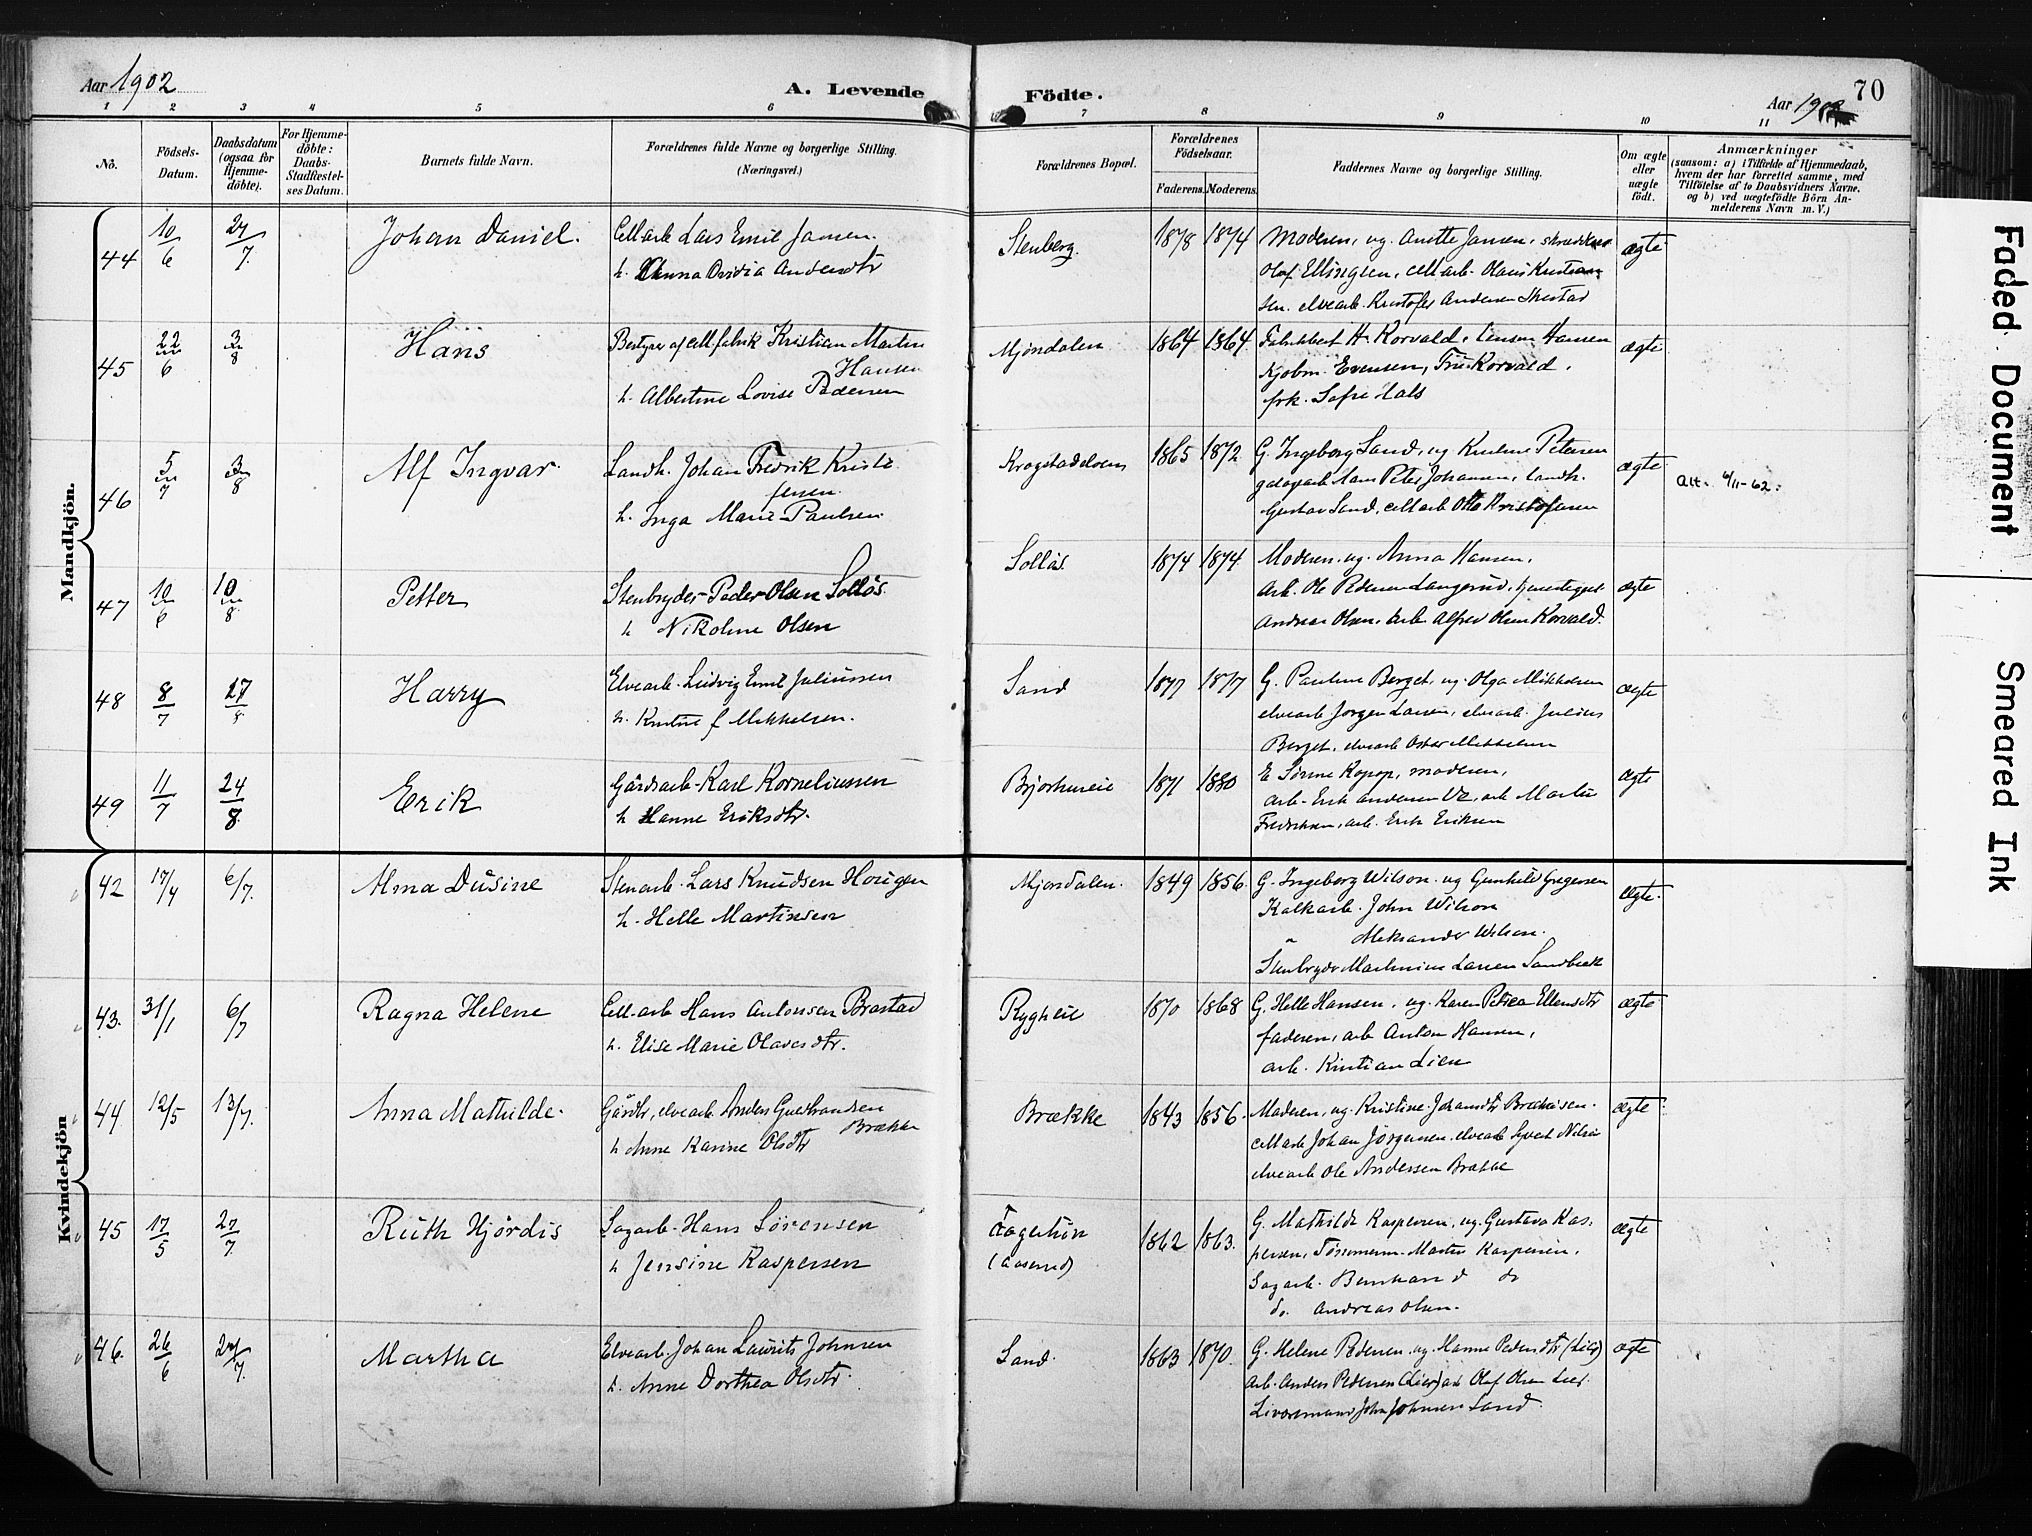 Aar 1902
A. Levende Födte.
Aar 1902
70
1 2 3 4 5 6 7 8 9 10 11
No.
Födsels-
Datum.
Daabsdatum
(ogsaa for
Hjemme-
döbte).
For Hjemme-
döbte:
Daabs-
Stadfæstel-
ses Datum.
Barnets fulde Navn.
Forældrenes fulde Navne og borgerlige Stilling.
(Næringsvei.)
Forældrenes Bopæl.
Forældrenes
Födselsaar.
Faderens. Moderens.
Faddernes Navne og borgerlige Stilling.
Om ægte
eller
uægte
født.
Anmærkninger
(saasom: a) i Tilfælde af Hjemmedaab,
hvem der har forrettet samme, med
Tilföielse af to Daabsvidners Navne,
og b) ved uægtefödte Börn An-
melderens Navn m. V.)
Mandkjön.
44 10/6 27/7 Johan Daniel. Cellarb Lars Emil Jansen
h. Anna Ovidia Andersdtr
Stenberg 1878 1874 Moderen, ug. Anette Jansen, skrædder
Olaf Ellingsen, cellarb. Olaus Kristian-
sen. elvearb. Kristofer Andersen ægte
45 22/6 3/8 Hans Bestyrer af cellfabrik Kristian Martin
Hansen
h. Albertine Lovise Pedersen
Mjöndalen 1864 1864 Fabrikbest H. Korvald, Hansen
Kjøbm. Evensen, Frue Korvald,
frk. Sofie Hals ægte
46 5/7 3/8 Alf Ingvar. Landh. Johan Fredrik Kristi-
ensen.
h. Inga Marie Paulsen
Krogstadelven 1865 1872 G. Ingeborg Sand, ug Petersen
Hans Peter Johansen, landh.
Gustav Sand, cellarb Otto Kristofersen ægte
Att. 4/11-62.
47 10/6 10/8 Petter Stenbryder Peder Olsen Sollös
h Nikoline Olsen
Sollös 1874 1874 Moderen, ug. Anna Hansen,
Arb. Ole Pedersen Langerud,
Andreas Olsen, arb Alfred Olsen Korvald. ægte
48 8/7 17/8 Harry Elvearb. Ludvig Emil Juliussen
h. Kristine f Mikkelsen.
Sand 1877 1877 G. Pauline Berget, ug. Olga Mikkelsen
elvearb Jørgen Larsen, elvearb. Julius
Berget, elvearb Oskar Mikkelsen ægte
49 11/7 24/8 Erik Gårdsarb. Karl Korneliussen
h Hanne Eriksdtr.
1871 1880 E Moderen,
arb. Erik Andersen arb Martin
Fredriksen, arb. Erik Eriksen ægte
Kvindekjön
42 17/4 6/7 Alma Dusine Stenarb. Lars Knudsen Hougen
h. Helle Martinsen
Mjöndalen. 1849 1856. G. Ingeborg Wilson. ug Gunhild Gregersen
Kalkarb. John Wilson
" Aleksander Wilson.
Stenbryder Martinius Larsen Sandbæk ægte.
43. 31/1 6/7 Ragna Helene Cell. arb Hans Antonsen Brastad
h. Elise Marie Olavesdtr.
Rygheie 1870 1868 G. Helle Hansen, ug. Karen Petrea Ellensdtr
faderen, arb Anton Hansen,
arb. Kristian Lien ægte
44 12/5 13/7. Anna Mathilde. Gårdbr, elvearb. Anders Gulbrandsen
Brække
h Anne Karine Olsdtr
Brække 1843 1856. Moderen, ug. Kristine Johansdtr
cellarb Johan Jørgensen. elvearb Syvert Nilsen
elvearb Ole Andersen Brække ægte
45 17/5 27/7 Ruth Hjördis Sagarb. Hans Sörensen
h Jensine Kaspersen
Fagerhön
(Aaserud) 1862 1863. G. Mathilde Kaspersen, ug. Gustava Kas-
persen, Tømmerm. Martin Kaspersen,
Sagarb. Bernhard do
do. Andreas Olsen. ægte
46. 26/6 27/7. Martha Elvearb. Johan Laurits Johnsen
h. Anne Dorthea Olsdtr.
Sand. 1863 1870. G. Helene Pedersen. ug. Hanne Pedersdtr (Lier)
arb. Anders Pedersen (Lier) arb Olaf Olsen Lier.
John Johnsen Sand. ægte
Faded Document
Smeared Ink